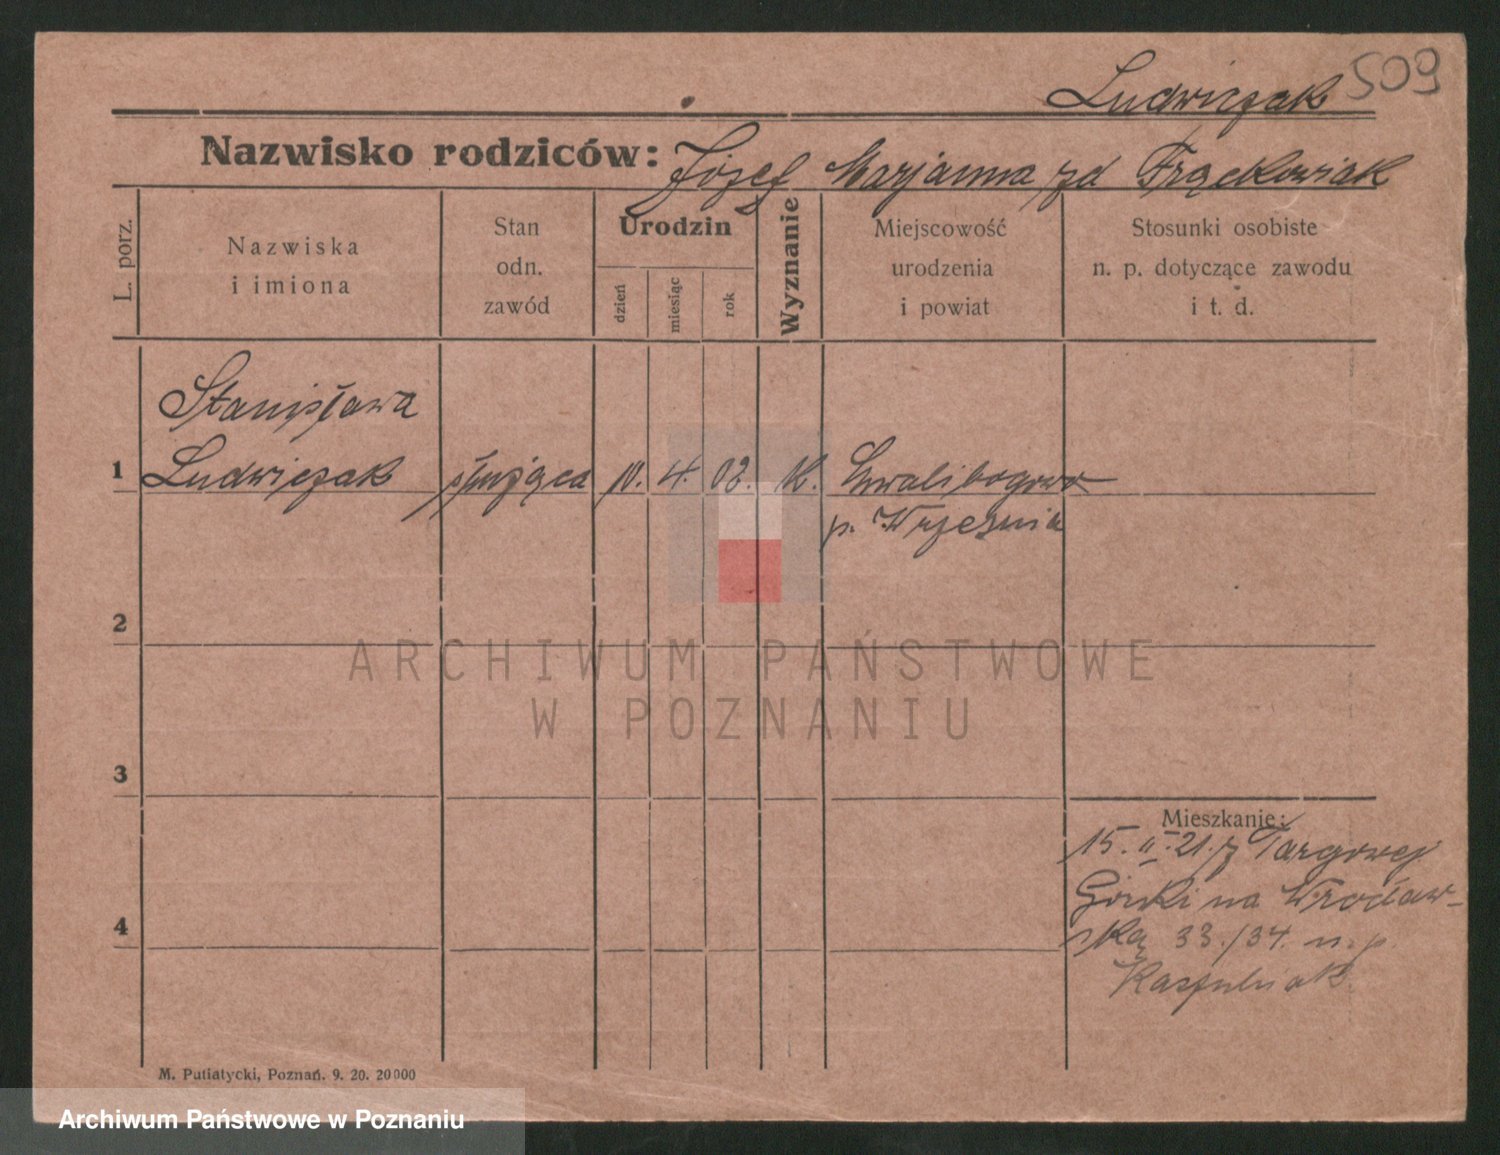 Ludwiczak 509
Nazwisko rodziców: Józef Marjanna zd Frąckowiak
L. porz.
Nazwiska
i imiona
Stan
odn.
zawód
Urodzin
dzień
miesiąc
rok
Wyznanie
Miejscowość
urodzenia
i powiat
Stosunki osobiste
n. p. dotyczące zawodu
i t. d.
Stanisława
1 Ludwiczak służąca 10. 4. 02. K. Chwalibogowo
p. Września
2
3
4
Mieszkanie:
15. II. 21. z Targowej
Górki na Wrocław-
ską 33./34. u. p.
Kaszubiak.
M. Putiatycki, Poznań. 9. 20. 20000
ARCHIWUM PAŃSTWOWE
W POZNANIU
Archiwum Państwowe w Poznaniu